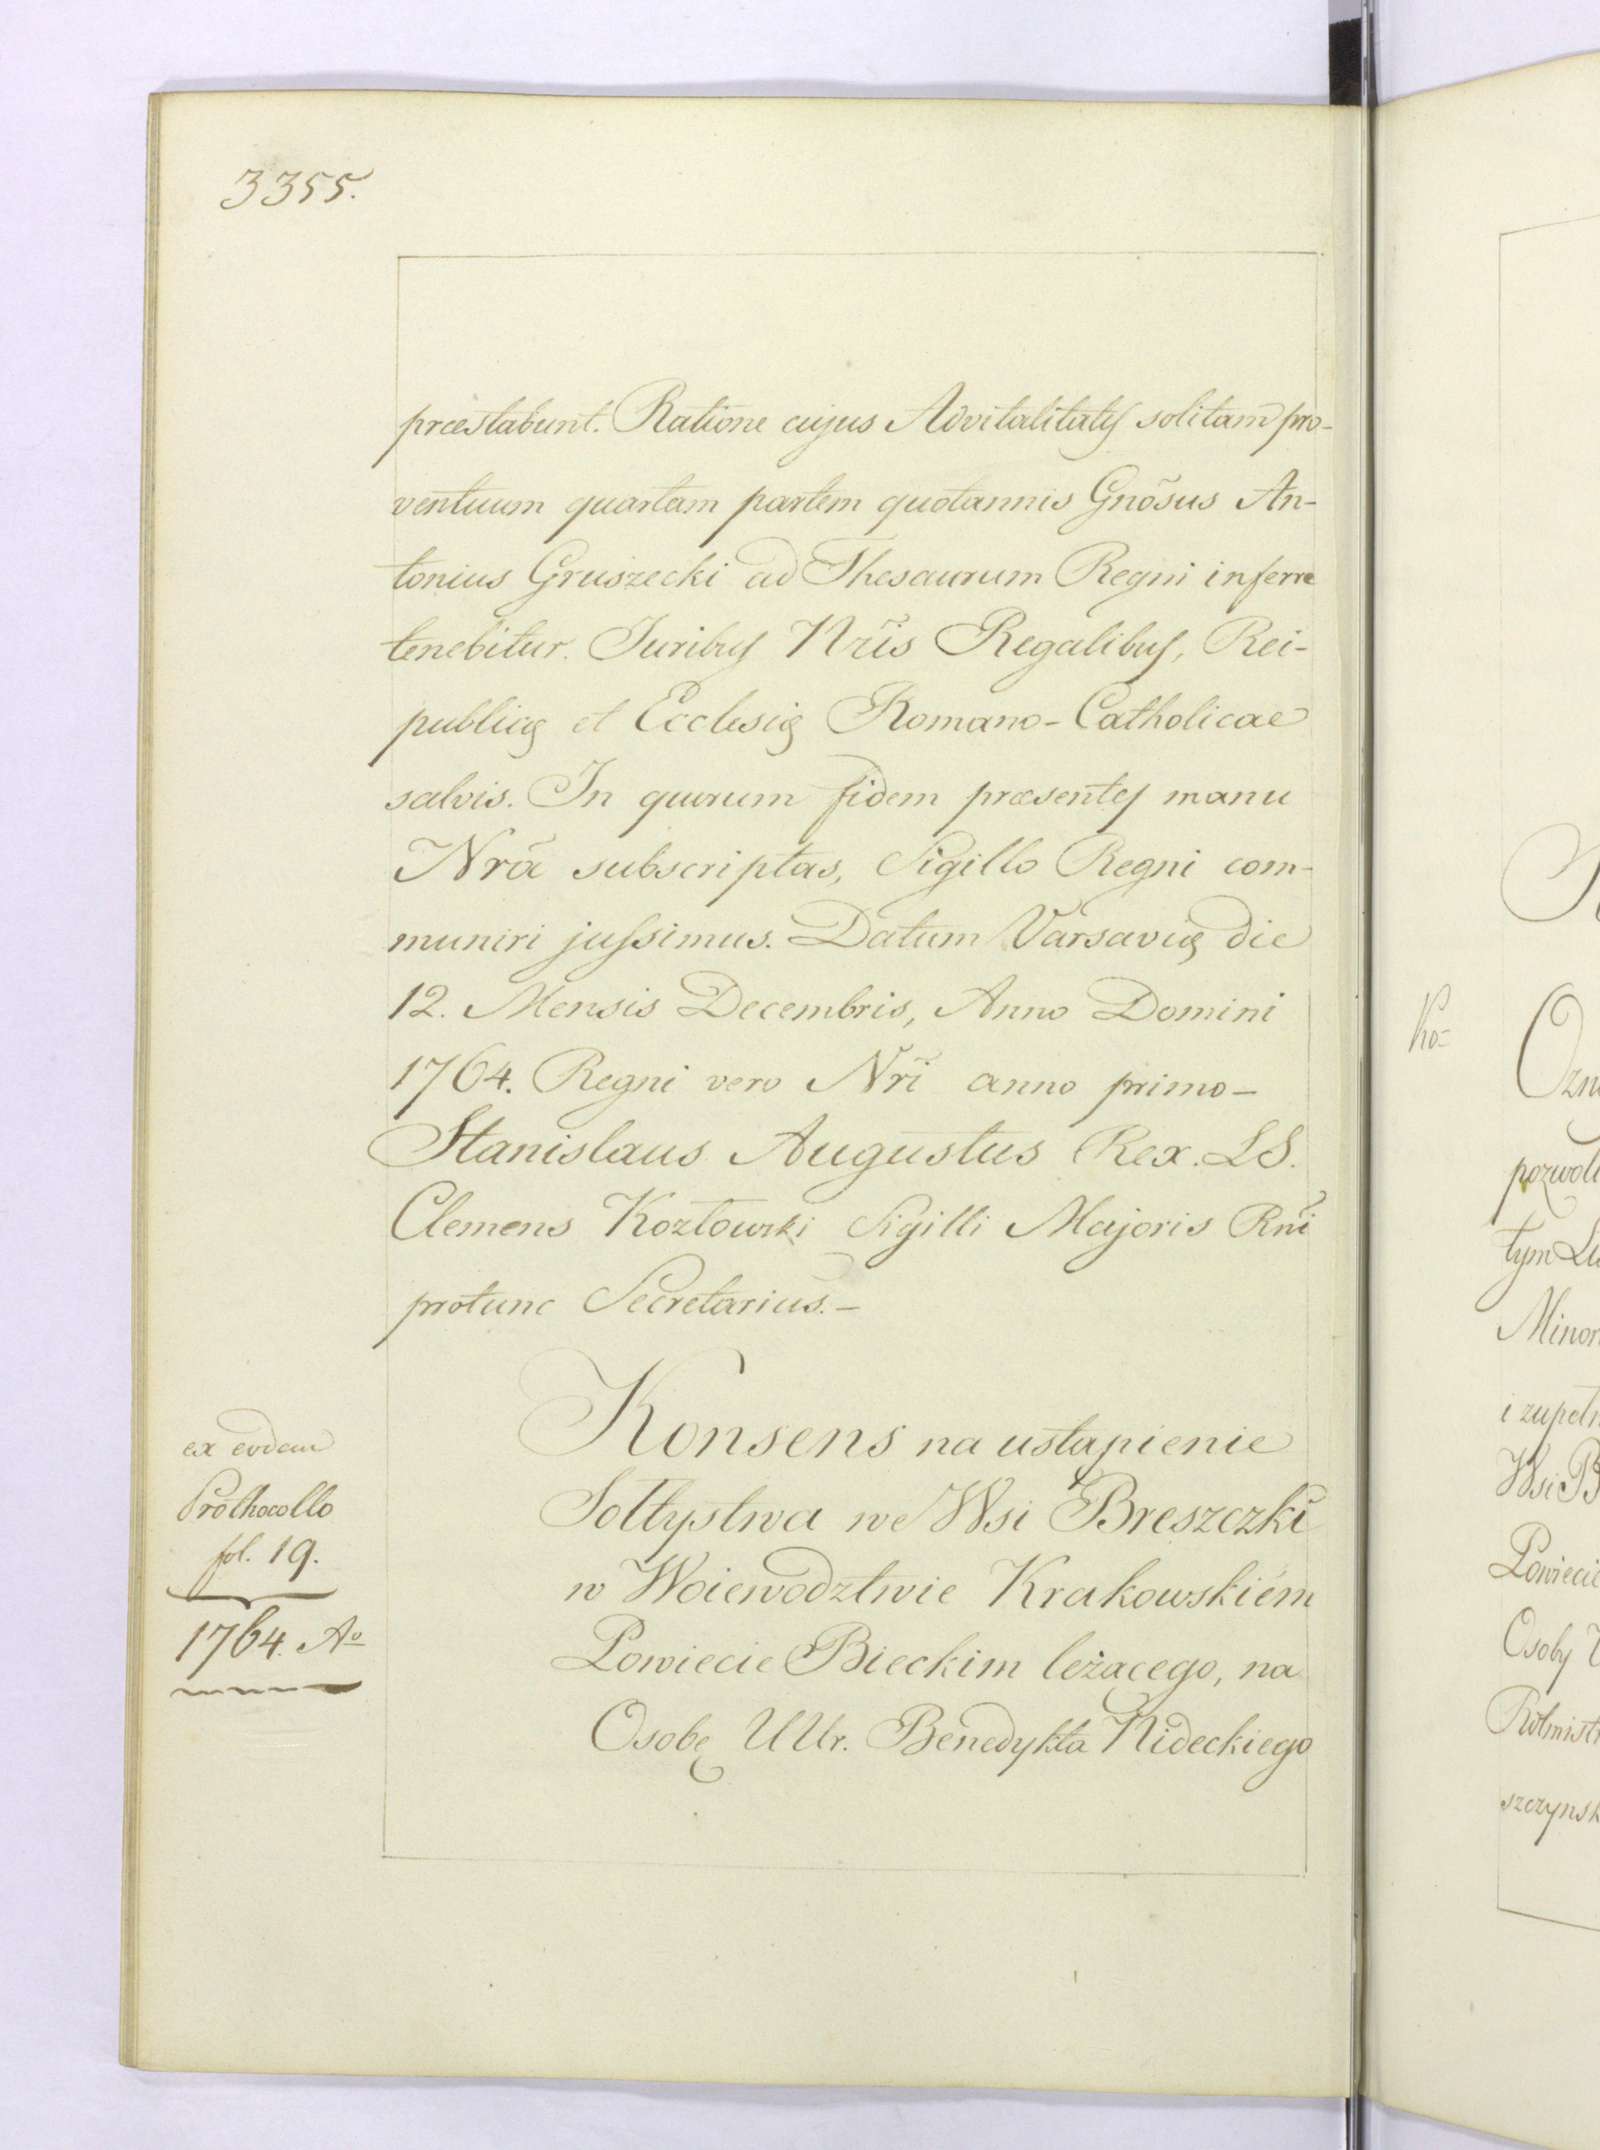 3355.
præstabunt. Ratione cujus Advitalitatis solitam pro-
ventuum quartam partem quotannis Gnõsus An-
tonius Gruszecki ad Thesaurum Regni inferre
tenebitur. Juribus Nr̃is Regalibus, Rei-
publicę et Ecclesię Romano-Catholicae
salvis. In quorum fidem præsentes manu
Nrã subscriptas, Sigillo Regni com-
muniri jussimus. Datum Varsavię die
12. Mensis Decembris, Anno Domini
1764. Regni vero Nr̃i anno primo-
Stanislaus Augustus Rex. LS.
Clemens Kozłowski Sigilli Majoris Rñi
protunc Secretarius.-
ex eodem
Prothocollo
fol. 19.
1764. Aº
Konsens na ustąpienie
Sołtystwa we Wsi Breszczki
w Woiewodztwie Krakowskiém
Powiecie Bieckim leżącego, na
Osobę UUr. Benedykta Nideckiego
Ko=
Ozn
pozwoli
tym Lu
Minor
i zupełn
Wsi B
Powiecie
Osoby U
Rotmistr
szczynsk